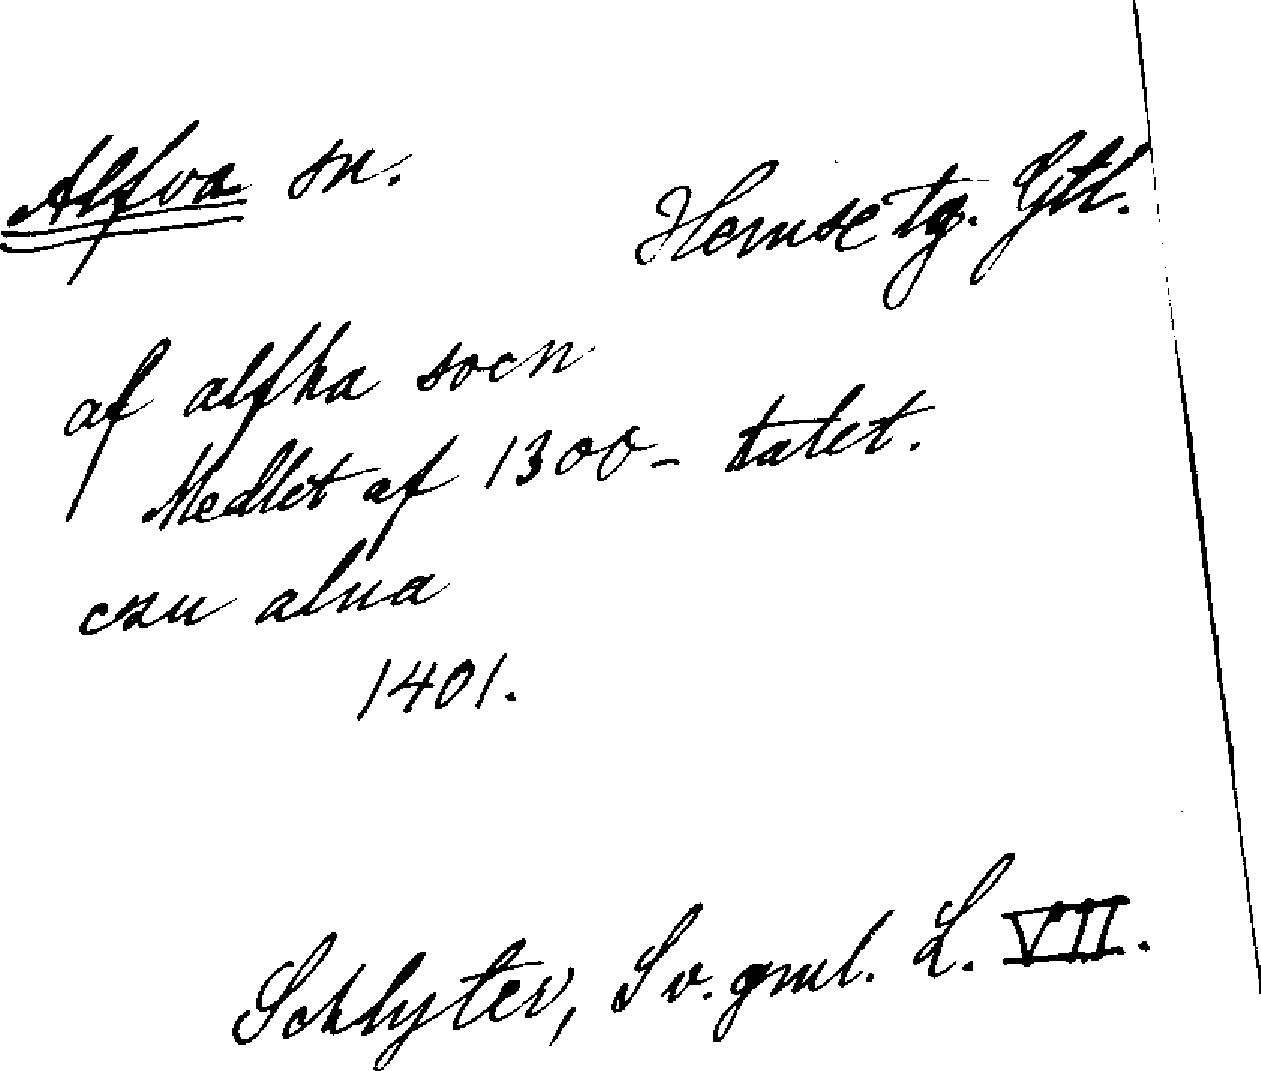 Alfva sn.
Hemse tg. Gtl.
af alfha socn
Medlet af 1300-talet.
czu alua
1401.
Schlyter, Sv. gml. L. VII.